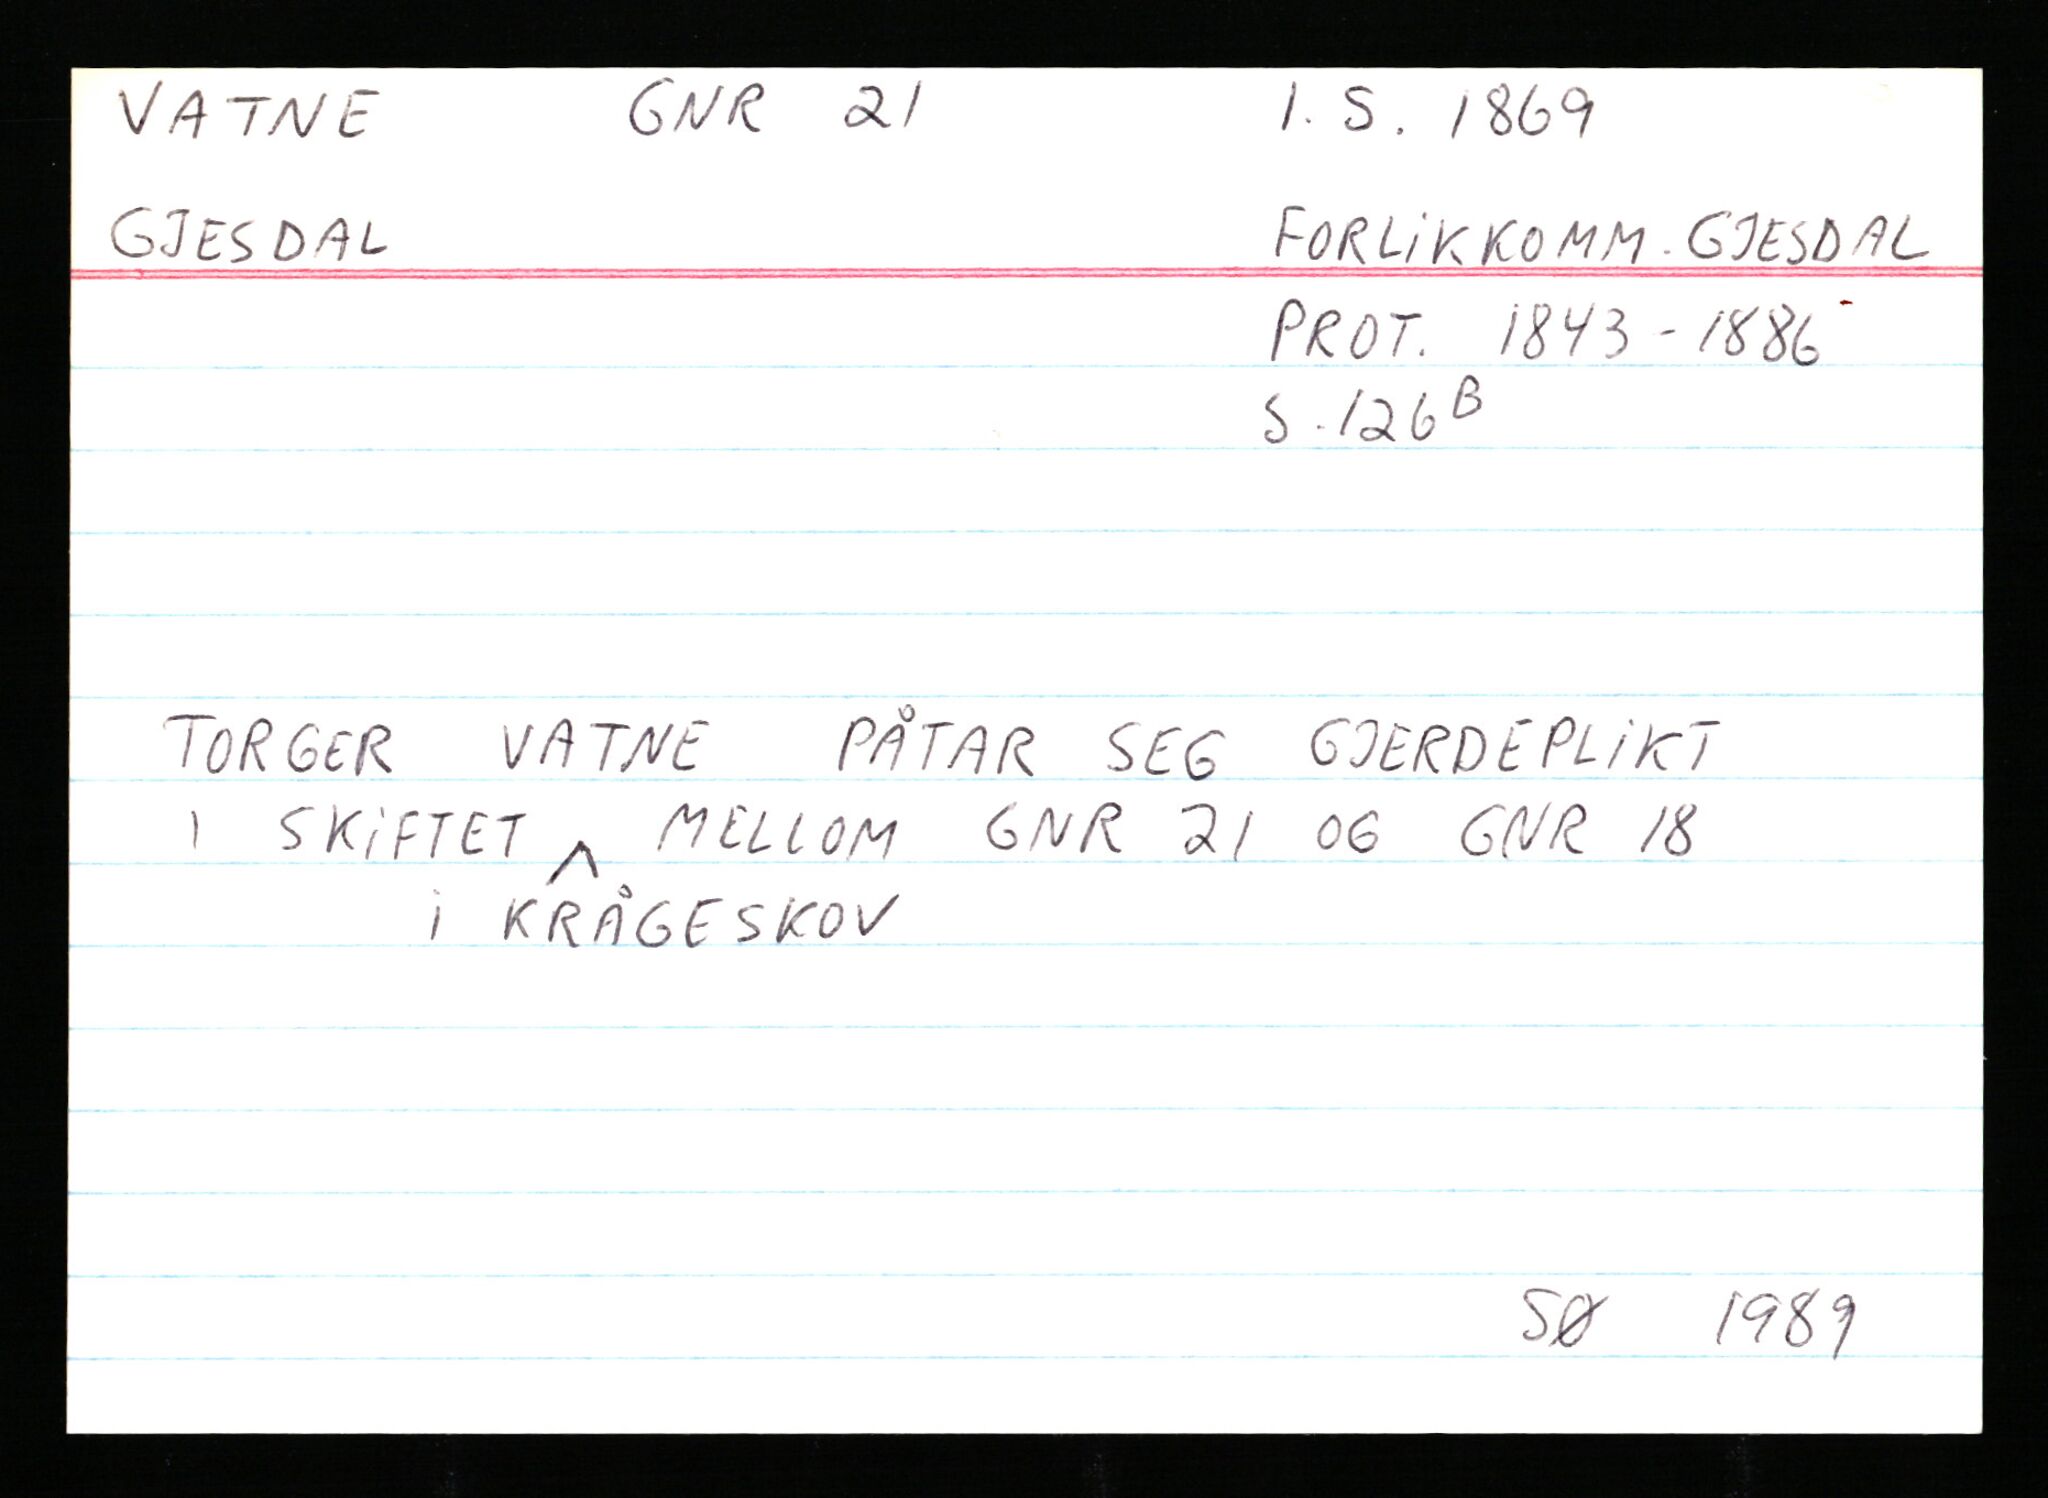 VATNE GNR 21 1. S. 1869
GJESDAL FORLIKKOMM. GJESDAL
PROT. 1843 - 1886
S. 126 B
TORGER VATNE PÅTAR SEG GJERDEPLIKT
I SKIFTET ^ MELLOM GNR 21 OG GNR 18
i KRÅGESKOV
SØ 1989